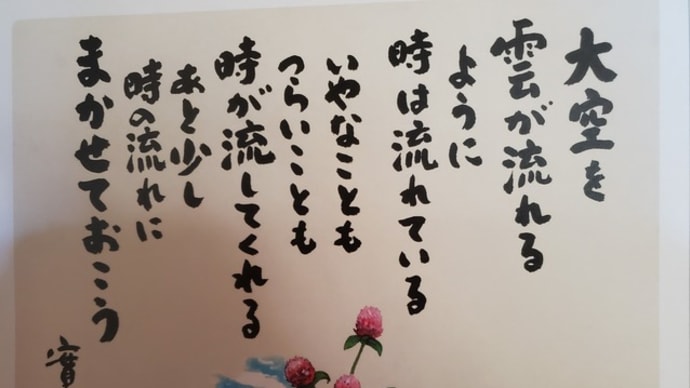 大空を
雲が流れる
ように
時は流れている
いやなことも
つらいことも
時が流してくれる
あと少し
時の流れに
まかせておこう
實